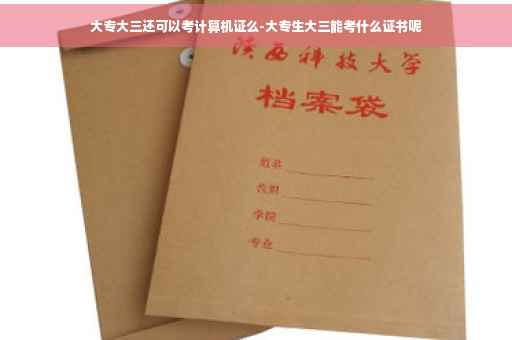 大专大三还可以考计算机证么-大专生大三能考什么证书呢
陕西科技大学
档案袋
姓名
学院
专业